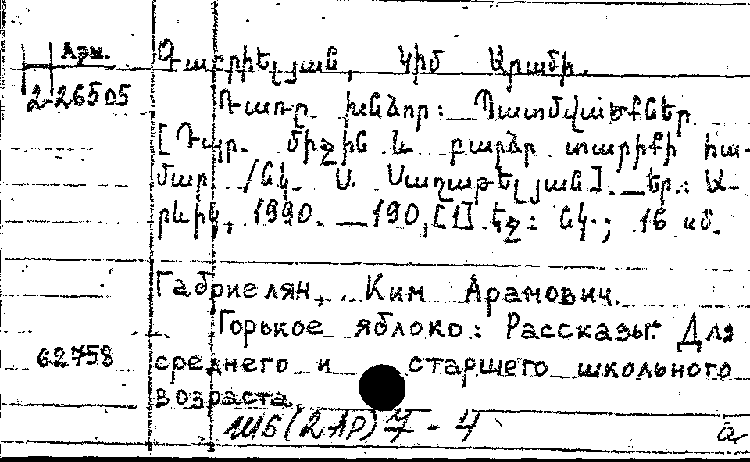 Арм.
Գաբրիելյան, Կիմ Արամի.
2-26505
Դառը խնձոր: Պատմվածքներ
[Դպր. միջին և բարձր տարիքի հա-
մար /Նկ. Ս. Սաղաթելյան]. _Եր.: Ա-
րևիկ, 1990. _190,[1] էջ: նկ.; 16 սմ.
Габриелян, Ким Арамович.
Горькое яблоко: Рассказы: Для
62758
среднего и старшего школьного
возраста
Ш6(2АР)7-4
а